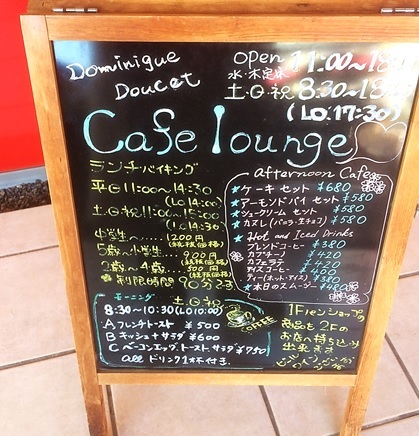 Dominique
Doucet
open 11:00~18:
水・木定休
土・日・祝 8:30~18:
(LO.17:30)
Cafe lounge
ランチバイキング
平日11:00~14:30
(LO14:00)
土・日・祝11:00~15:00
(LO14:30)
小学生~ 1200円
(税抜価格)
5歳~小学生 900円
(税抜価格)
2歳~4歳 500円
(税抜価格)
制限時間 90分です
afternoon Cafe
★ケーキ セット ¥680
★アーモンドパイ セット ¥580
★シュークリーム セット ¥580
★カヌレ(バニラ・生チョコ) ¥580
Hot and Iced Drinks
★ブレンドコーヒー ¥380
★カプチーノ ¥420
★カフェラテ ¥420
★アイスコーヒー ¥400
★ティー(ホット・アイス) ¥380
★本日のスムージー ¥480
モーニング 土日祝
8:30~10:30(LO10:00)
A フレンチトースト ¥500
B キッシュ+サラダ ¥600
C ベーコンエッグ、トースト、サラダ ¥750
all ドリンク1杯付き.
COFFEE
1Fショップの
商品を2Fの
お店へ持ち込み
出来ます